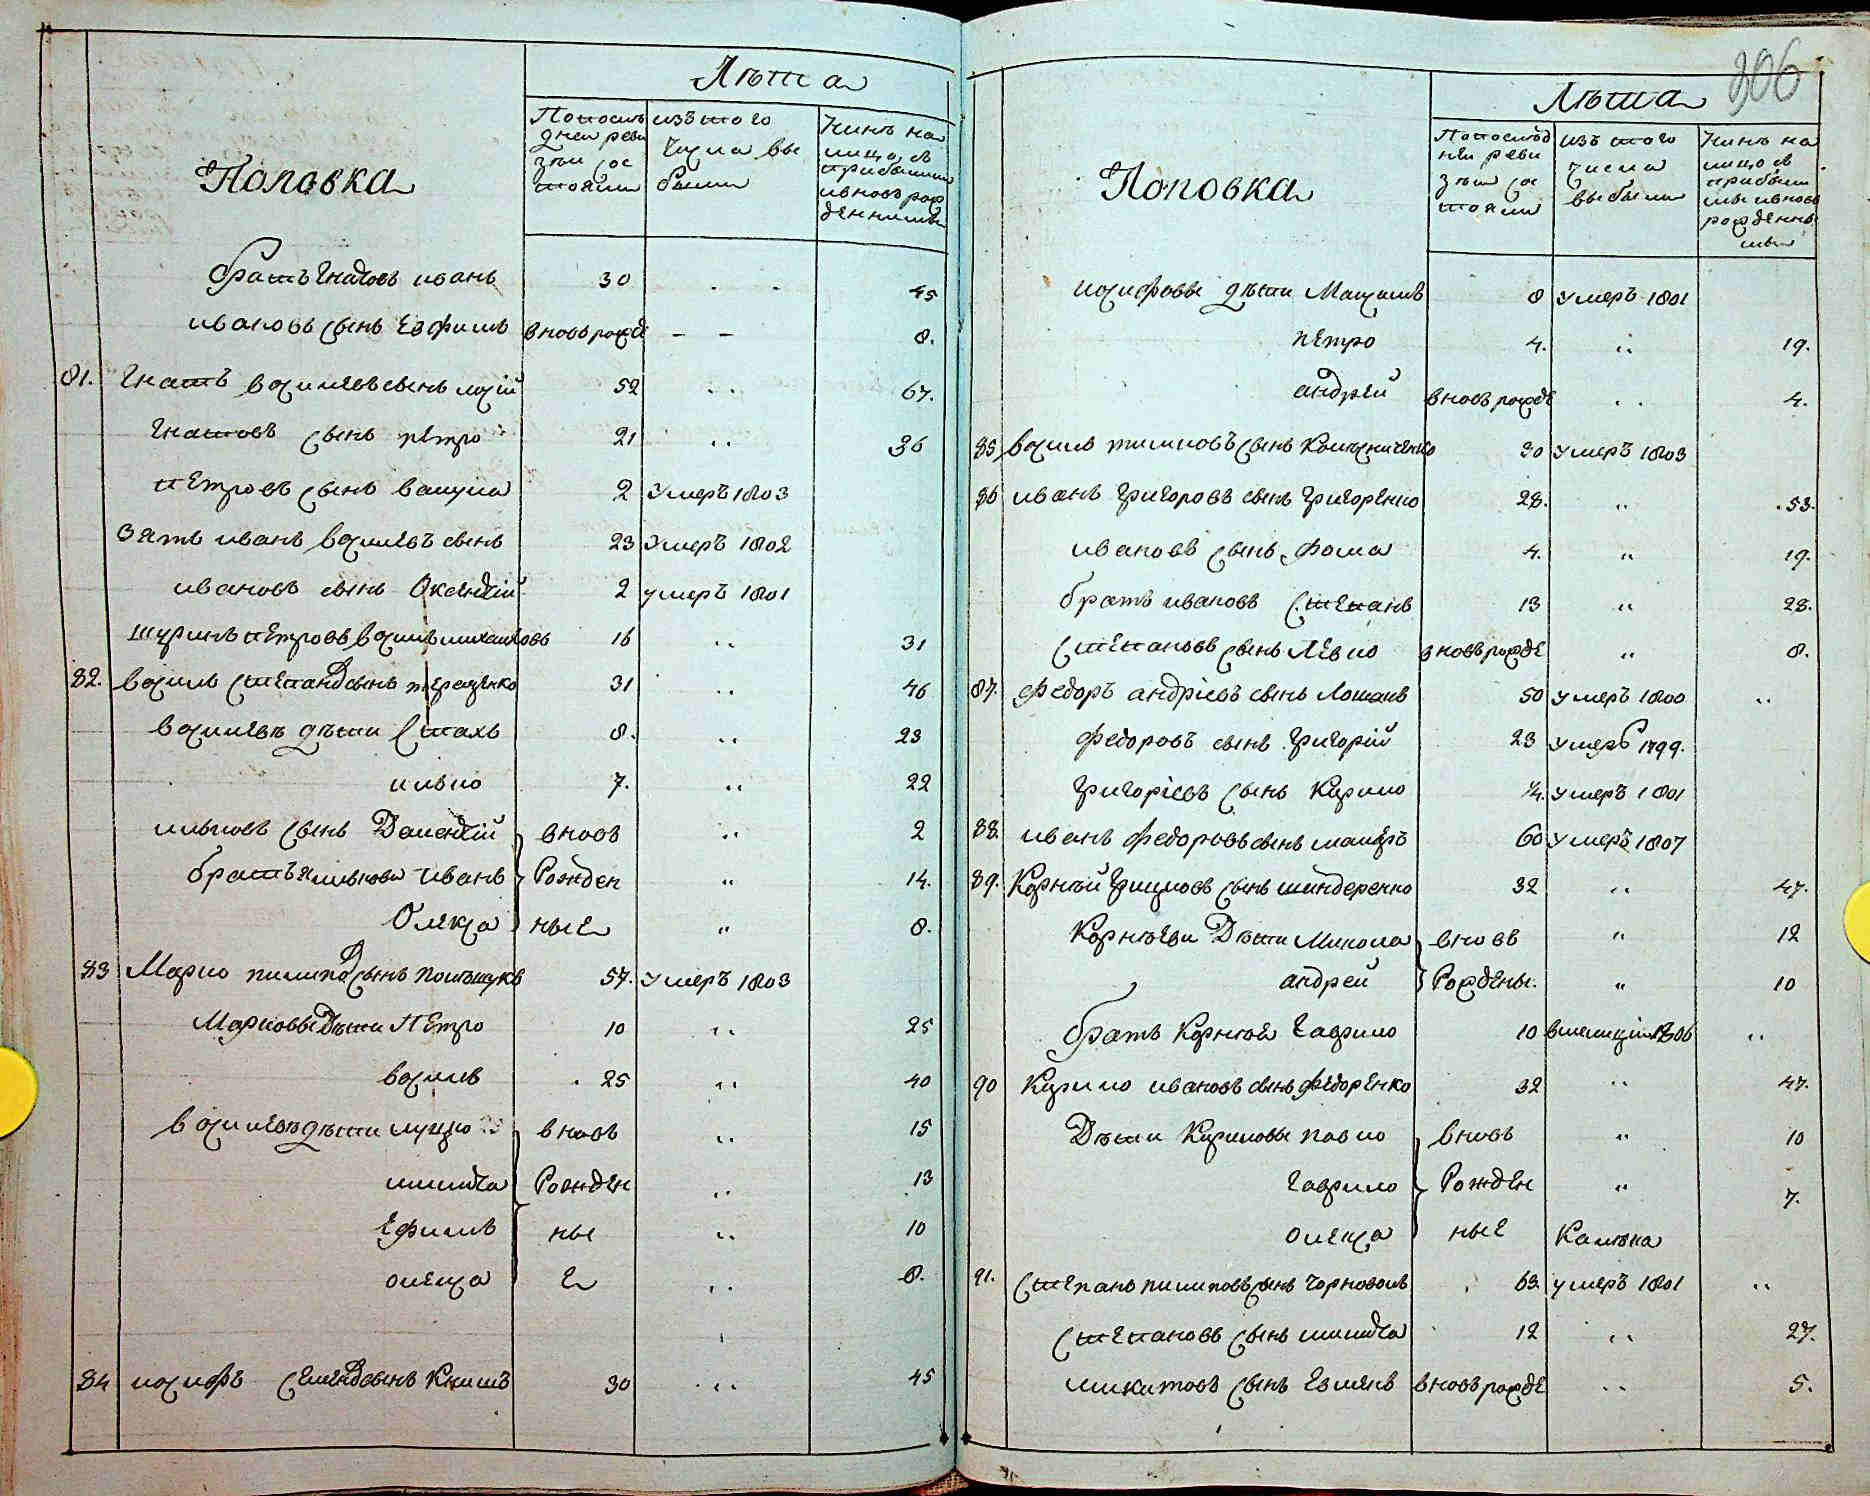 Лѣта
Поповка
По послѣдней ревизіи состояли
изъ того числа выбыли
Нынѣ на лицо съ прибылыми и вновь рожденными
братъ Гнатовъ иванъ 30 45
ивановъ сынъ Евфимъ вновь рожде 8.
81. Гнатъ василіевъ сынъ 52 67.
Гнатовъ сынъ петро 21 36
петровъ сынъ вакула 2 умеръ 1803
Зять иванъ василіевъ сынъ 23 умеръ 1802
ивановъ сынъ Оксентій 2 умеръ 1801
шуринъ петровъ василь михайловъ 16 31
82. василь степановъ сынъ терещенко 31 46
василіевы дѣти Стахъ 8. 23
илько 7. 22
ильковъ сынъ Дементій вновь 2
братъ ильковъ иванъ Рожден 14.
Олекса ные 8.
83 Марко пилиповъ сынъ полѣщукъ 57. умеръ 1803
Марковы Дѣти Петро 10 25
василь 25 40
василіевы дѣти вновь 15
микита Рожден 13
Ефимъ ны 10
олекса е 8.
84 иосифъ Семеновъ сынъ Книшъ 30 45
306
Лѣта
Поповка
По послѣдней ревизіи состояли
изъ того числа выбыли
Нынѣ на лицо съ прибылыми и вновь рожденными
иосифовы дѣти Максимъ 8 умеръ 1801
петро 4. 19.
андрей вновь рожде 4.
85 василь тимковъ сынъ Колѣсниченко 30 умеръ 1803
86 иванъ Григоровъ сынъ Григоренко 28. 53.
ивановъ сынъ фома 4. 19.
братъ ивановъ Степанъ 13 28.
Степановъ сынъ Левко вновь рожде 8.
87. федоръ андріевъ сынъ 50 умеръ 1800
федоровъ сынъ Григорій 23 умеръ 1799.
Григоріевъ сынъ Кирило 1/4. умеръ 1801
88. иванъ федоровъ сынъ 60 умеръ 1807
89. Корнѣй Грицковъ сынъ шиндеренко 32 47.
Корнѣеви Дѣти Микола вновь 12
андрей Рождены. 10
братъ Корнѣя Гаврило 10 вмилиціи 1806
90 Кирило ивановъ сынъ федоренко 32 47.
Дѣти Кириловы павло вновь 10
Гаврило Рожден 7.
олекса ные Калѣка
91. Степанъ пилиповъ сынъ Чорноволъ 63 умеръ 1801
Степановъ сынъ микита 12 27.
микитовъ сынъ Евменъ вновь рожде 5.